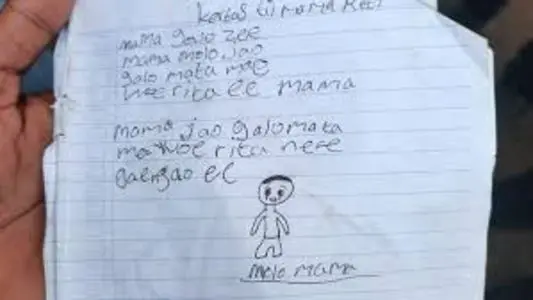 kertas tii mama reti
mama galo zee
mama molo jao
galo mata mae
nee rita ee mama
mama jao galo mata
mama moe rita nee
gaengao ee
molo mama